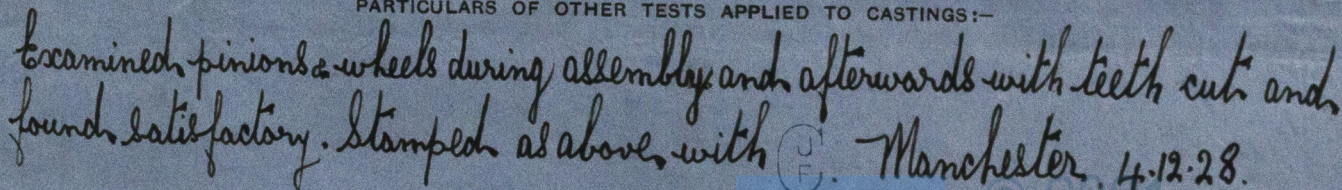 PARTICULARS OF OTHER TESTS APPLIED TO CASTINGS:—
Examined pinions & wheels during assembly and afterwards with teeth cut and
found satisfactory. Stamped as above, with JF. Manchester. 4.12.28.